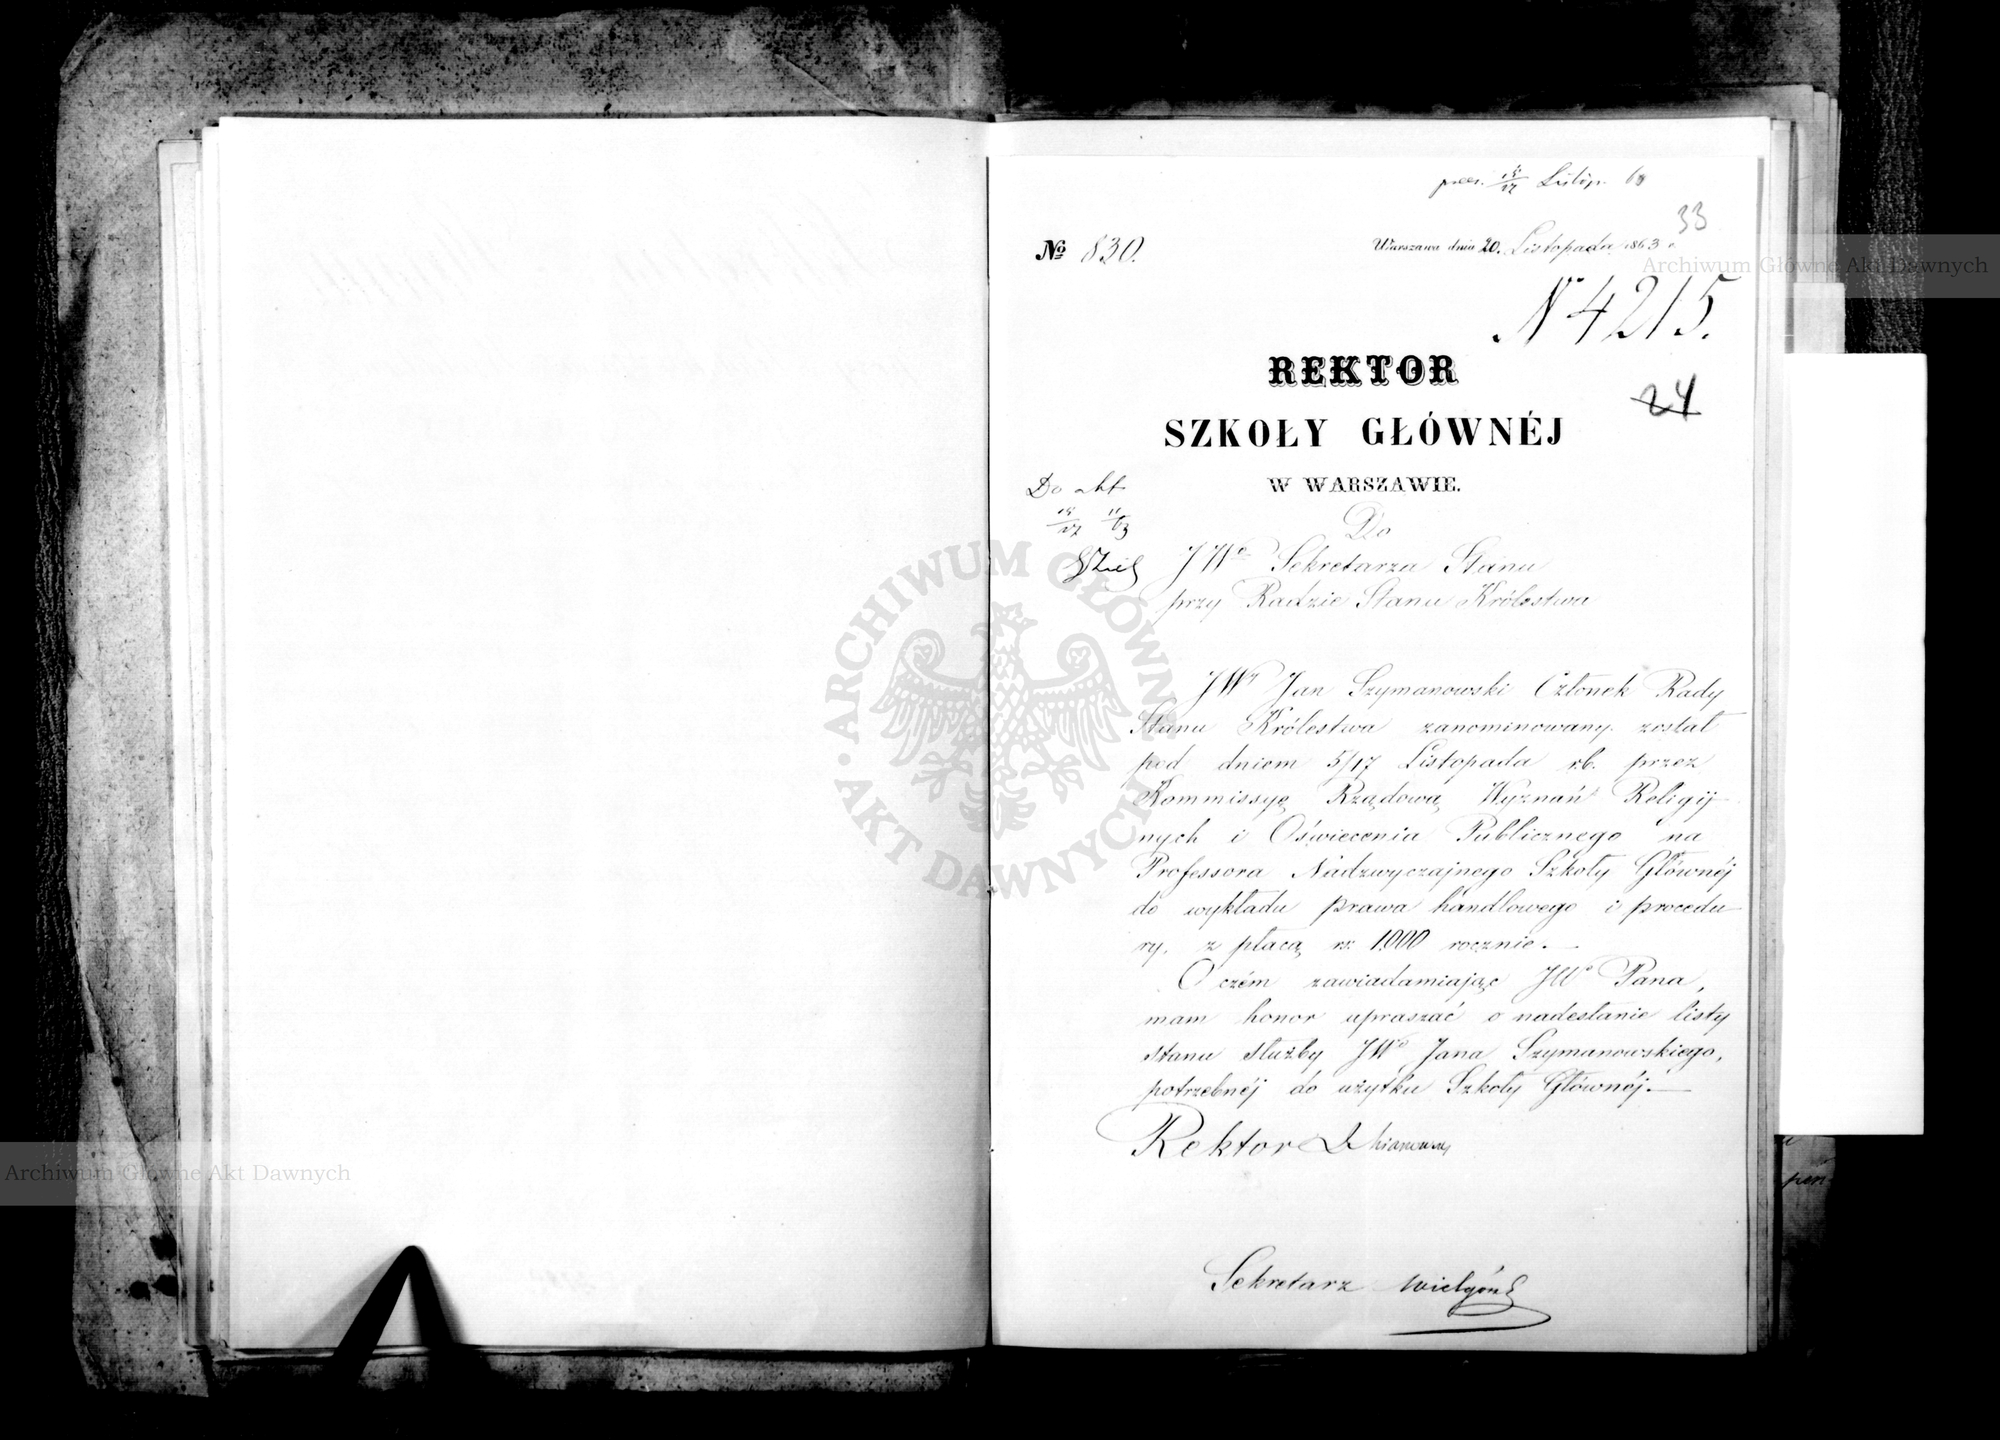 prez. 15/27 Listop. 63
33
№ 830.
Warszawa dnia 20. Listopada 1863 r.
N 4215.
REKTOR
24
SZKOŁY GŁÓWNÉJ
W WARSZAWIE.
Do akt
15/27 11/63
Do
JWo Sekretarza Stanu
przy Radzie Stanu Królestwa
JWy Jan Szymanowski Członek Rady
Stanu Królestwa zanominowany został
pod dniem 5/17 Listopada r.b. przez
Kommissyę Rządową Wyznań Religij
nych i Oświecenia Publicznego na
Professora Nadzwyczajnego Szkoły Głównéj
do wykładu prawa handlowego i procedu
ry, z płacą rs. 1.000 rocznie.—
O czém zawiadamiając JWo Pana,
mam honor upraszać o nadesłanie listy
stanu służby JWo Jana Szymanowskiego,
potrzebnéj do użytku Szkoły Głównéj.—
Rektor Mianowski
Sekretarz
Archiwum Główne Akt Dawnych
ARCHIWUM GŁÓWNE
AKT DAWNYCH
Archiwum Główne Akt Dawnych